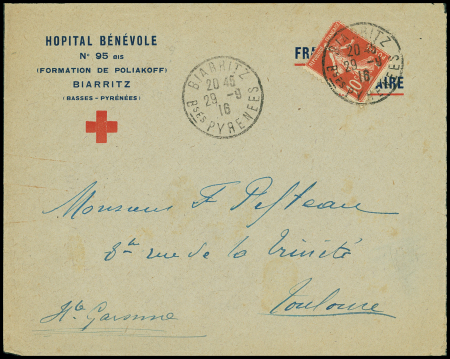 HOPITAL BÉNÉVOLE
N° 95 BIS
(FORMATION DE POLIAKOFF)
BIARRITZ
(BASSES-PYRÉNÉES)
BIARRITZ
20 45
29 -9
16
Bses PYRENEES
FR
AIRE
BIARRITZ
20 45
29 -9
16
Bses PYRENEES
10
Monsieur F
rue de la Trinité
Toulouse
Hte Garonne